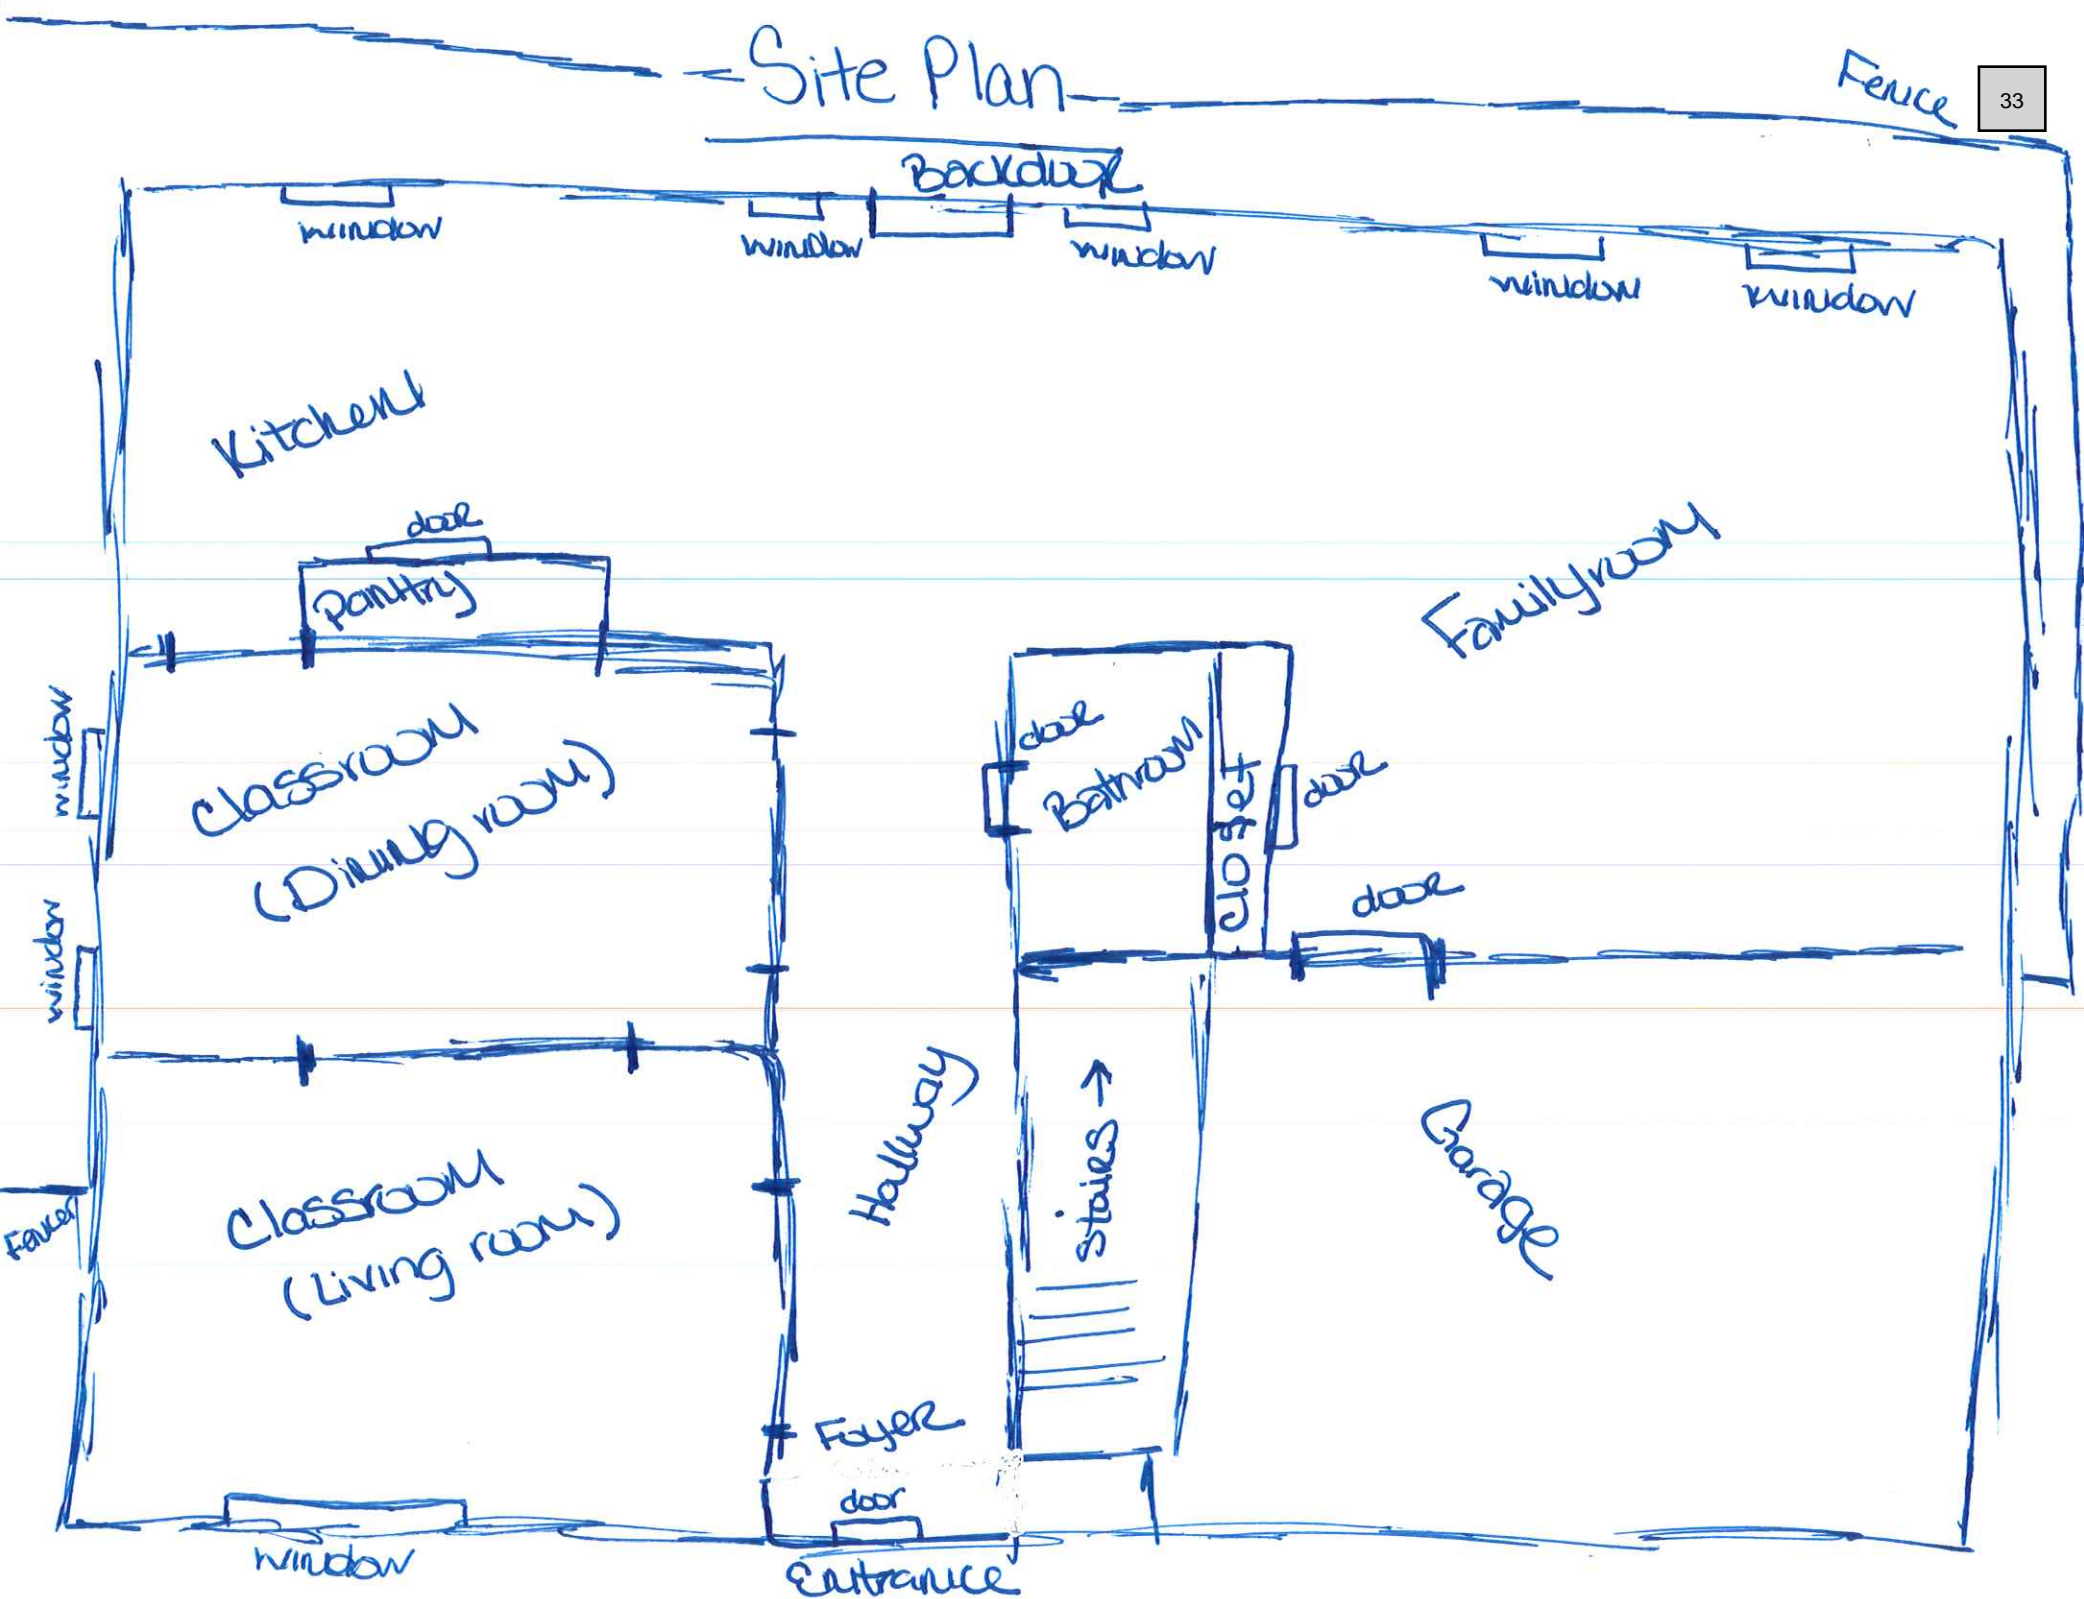 Site Plan
Fence
33
Backdoor
window
window
window
window
window
Kitchen
door
Pantry
Familyroom
window
Classroom
(Dining room)
door
Bathroom
Closet
door
door
window
Hallway
Stairs →
Garage
Fence
Classroom
(Living room)
Foyer
door
window
Entrance